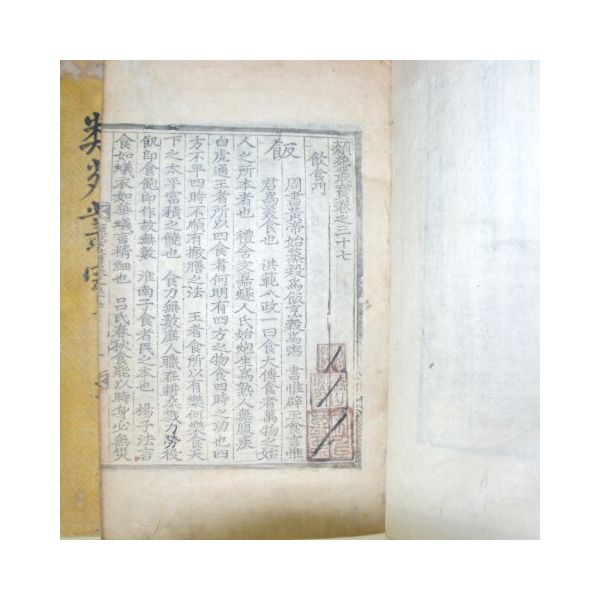 類苑叢寶卷之三十七
飲食門
飯
周書黃帝始蒸穀爲飯烹穀爲粥 書惟辟玉食言惟
君爲美食也 洪範八政一曰食大傳食者萬物之始
人之所本者也 禮含文嘉燧人氏始炮生爲熟人無腹疾
白虎通王者所以四食者何明有四方之物食四時之功也四
方不平四時不順有撤膳之法 王者食所以有樂何樂食天
下之太平富積之饒也 食力無數庶人職在耕桑戮力勞役
飢即食飽即作故無數 淮南子食者民之本也 揚子法言
食如蟻衣如華蟻言精細也 呂氏春秋食能以時身必無災
類苑叢寶